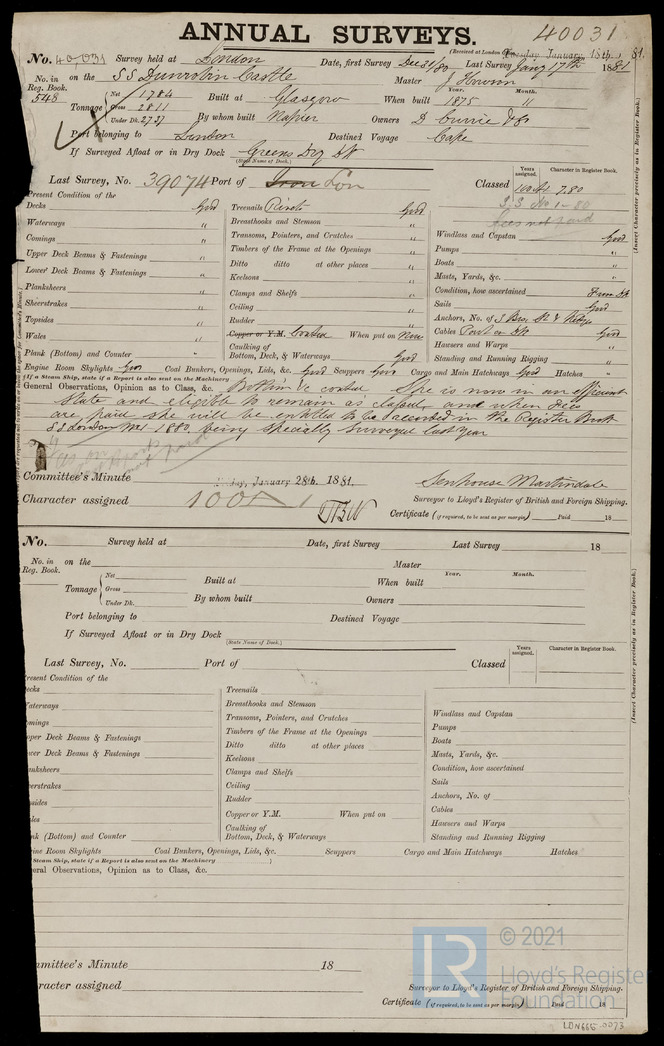 ANNUAL SURVEYS.
40031
(Received at London Tuesday January 18th, 1881.
No. 40031 Survey held at London Date, first Survey Dec 31/80 Last Survey Jany 17th 1881
No. in Reg. Book. 548 on the SS Dunrobin Castle Master J Howson
Tonnage Net 1784 Gross 2811 Under Dk. 2737
Built at Glasgow When built Year. 1875 Month. "
By whom built Napier Owners D Currie & Co
Port belonging to London Destined Voyage Cape
If Surveyed Afloat or in Dry Dock Greens Dry Dk
(State Name of Dock.)
Last Survey, No. 39074 Port of Lon Classed Years assigned. Character in Register Book.
100 A1 7,80
SS No 1 - 80
fees not paid
Present Condition of the
Decks Good
Waterways "
Comings "
Upper Deck Beams & Fastenings "
Lower Deck Beams & Fastenings "
Planksheers "
Sheerstrakes "
Topsides "
Wales "
Plank (Bottom) and Counter "
Treenails Rivets Good
Breasthooks and Stemson "
Transoms, Pointers, and Crutches "
Timbers of the Frame at the Openings "
Ditto ditto at other places "
Keelsons "
Clamps and Shelfs "
Ceiling "
Rudder "
Copper or Y.M. Coated When put on Now
Caulking of Bottom, Deck, & Waterways Good
Windlass and Capstan Good
Pumps "
Boats "
Masts, Yards, &c. "
Condition, how ascertained From Dk
Sails Good
Anchors, No. of 3 Bow, St & Kedge
Cables Good
Hawsers and Warps "
Standing and Running Rigging "
Engine Room Skylights Good Coal Bunkers, Openings, Lids, &c. Good Scuppers Good Cargo and Main Hatchways Good Hatches "
(If a Steam Ship, state if a Report is also sent on the Machinery
General Observations, Opinion as to Class, &c. Bottom &c coated She is now in an efficient
state and eligible to remain as classed, and when fees
are paid she will be entitled to be recorded in the Register Book
SS London No 1 1880, being specially surveyed last year
Committee's Minute Friday, January 28th. 1881.
Character assigned 100A1
Senhouse Martindale
Surveyor to Lloyd's Register of British and Foreign Shipping.
Certificate (if required, to be sent as per margin) Paid 18
(Insert Character precisely as in Register Book.)
No. Survey held at Date, first Survey Last Survey 18
No. in Reg. Book. on the Master
Tonnage Net Gross Under Dk.
Built at When built Year. Month.
By whom built Owners
Port belonging to Destined Voyage
If Surveyed Afloat or in Dry Dock
(State Name of Dock.)
Last Survey, No. Port of Classed Years assigned. Character in Register Book.
resent Condition of the
ecks
aterways
omings
pper Deck Beams & Fastenings
wer Deck Beams & Fastenings
anksheers
eerstrakes
sides
les
nk (Bottom) and Counter
Treenails
Breasthooks and Stemson
Transoms, Pointers, and Crutches
Timbers of the Frame at the Openings
Ditto ditto at other places
Keelsons
Clamps and Shelfs
Ceiling
Rudder
Copper or Y.M. When put on
Caulking of Bottom, Deck, & Waterways
Windlass and Capstan
Pumps
Boats
Masts, Yards, &c.
Condition, how ascertained
Sails
Anchors, No. of
Cables
Hawsers and Warps
Standing and Running Rigging
ine Room Skylights Coal Bunkers, Openings, Lids, &c. Scuppers Cargo and Main Hatchways Hatches
Steam Ship, state if a Report is also sent on the Machinery )
eral Observations, Opinion as to Class, &c.
(Insert Character precisely as in Register Book.)
mmittee's Minute 18
racter assigned
Surveyor to Lloyd's Register of British and Foreign Shipping.
Certificate (if required, to be sent as per margin) Paid 18
LR © 2021
Lloyd's Register
Foundation
LDN665-0073